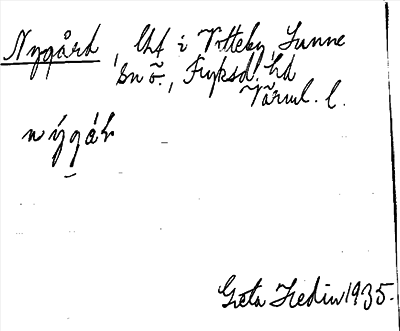 Nygård, lht i Votteby, Sunne
sn ö., Fryksd. hd
Värml. l.
nýgáṙ
Greta Hedin 1935.